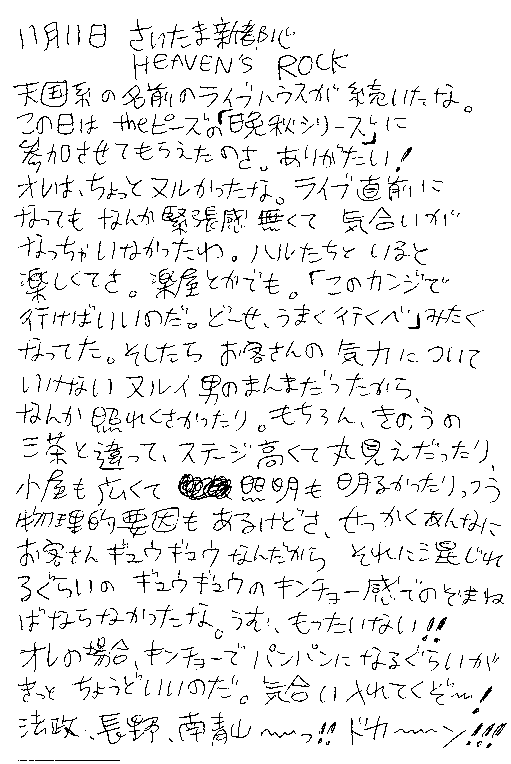 11月11日 さいたま新都心
HEAVEN'S ROCK
天国系の名前のライブハウスが続いたな。
この日は theピーズの「晩秋シリーズ」に
参加させてもらえたのさ。ありがたい!
オレは、ちょっとヌルかったな。ライブ直前に
なっても なんか緊張感無くて 気合いが
なっちゃいなかったわ。ハルたちといると
楽しくてさ。楽屋とかでも。「このカンジで
行けばいいのだ。ど〜せ、うまく行くべ」みたく
なってた。そしたら お客さんの 気力について
いけない ヌルイ男のまんまだったから、
なんか照れくさかったり。もちろん、きのうの
三茶と違って、ステージ高くて丸見えだったり、
小屋も広くて 照明も明るかったりっつう
物理的要因もあるけどさ、せっかくあんなに
お客さんギュウギュウなんだから それに混じれ
るぐらいの ギュウギュウのキンチョー感でのぞまね
ばならなかったな。うむ、もったいない!!
オレの場合、キンチョーでパンパンになるぐらいが
きっと ちょうどいいのだ。気合い入れてくぞ〜!
法政、長野、南青山〜〜っ!! ドカ〜〜ン!!!